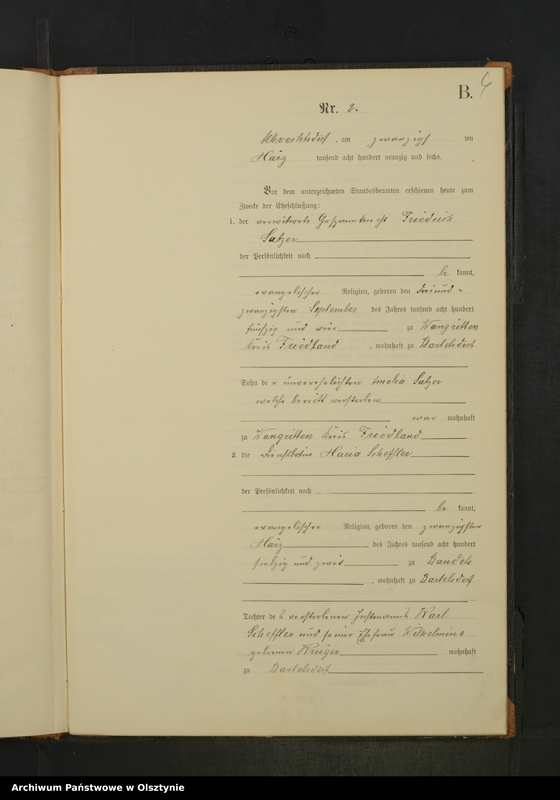 B. 4
Nr. 2.
Albrechtsdorf, am zwanzigsten
März tausend acht hundert neunzig und sechs.
Vor dem unterzeichneten Standesbeamten erschienen heute zum
Zwecke der Eheschließung:
1. der verwitwete Gespannknecht Friedrich
Satzer
der Persönlichkeit nach
be kannt,
evangelischer Religion, geboren den dreiund-
zwanzigsten September des Jahres tausend acht hundert
fünfzig und vier zu Wangritten
Kreis Friedland, wohnhaft zu Bartelsdorf
Sohn der unverehelichten Amalia Satzer
welche bereits verstorben
war wohnhaft
zu Wangritten Kreis Friedland
2. die Dienstbotin Maria Scheffler
der Persönlichkeit nach
be kannt,
evangelischer Religion, geboren den zwanzigsten
März des Jahres tausend acht hundert
siebzig und zwei zu Bandels
, wohnhaft zu Bartelsdorf
Tochter des verstorbenen Instmanns Karl
Scheffler und seiner Ehefrau Wilhelmine
geborenen Krüger wohnhaft
zu Bartelsdorf
Archiwum Państwowe w Olsztynie